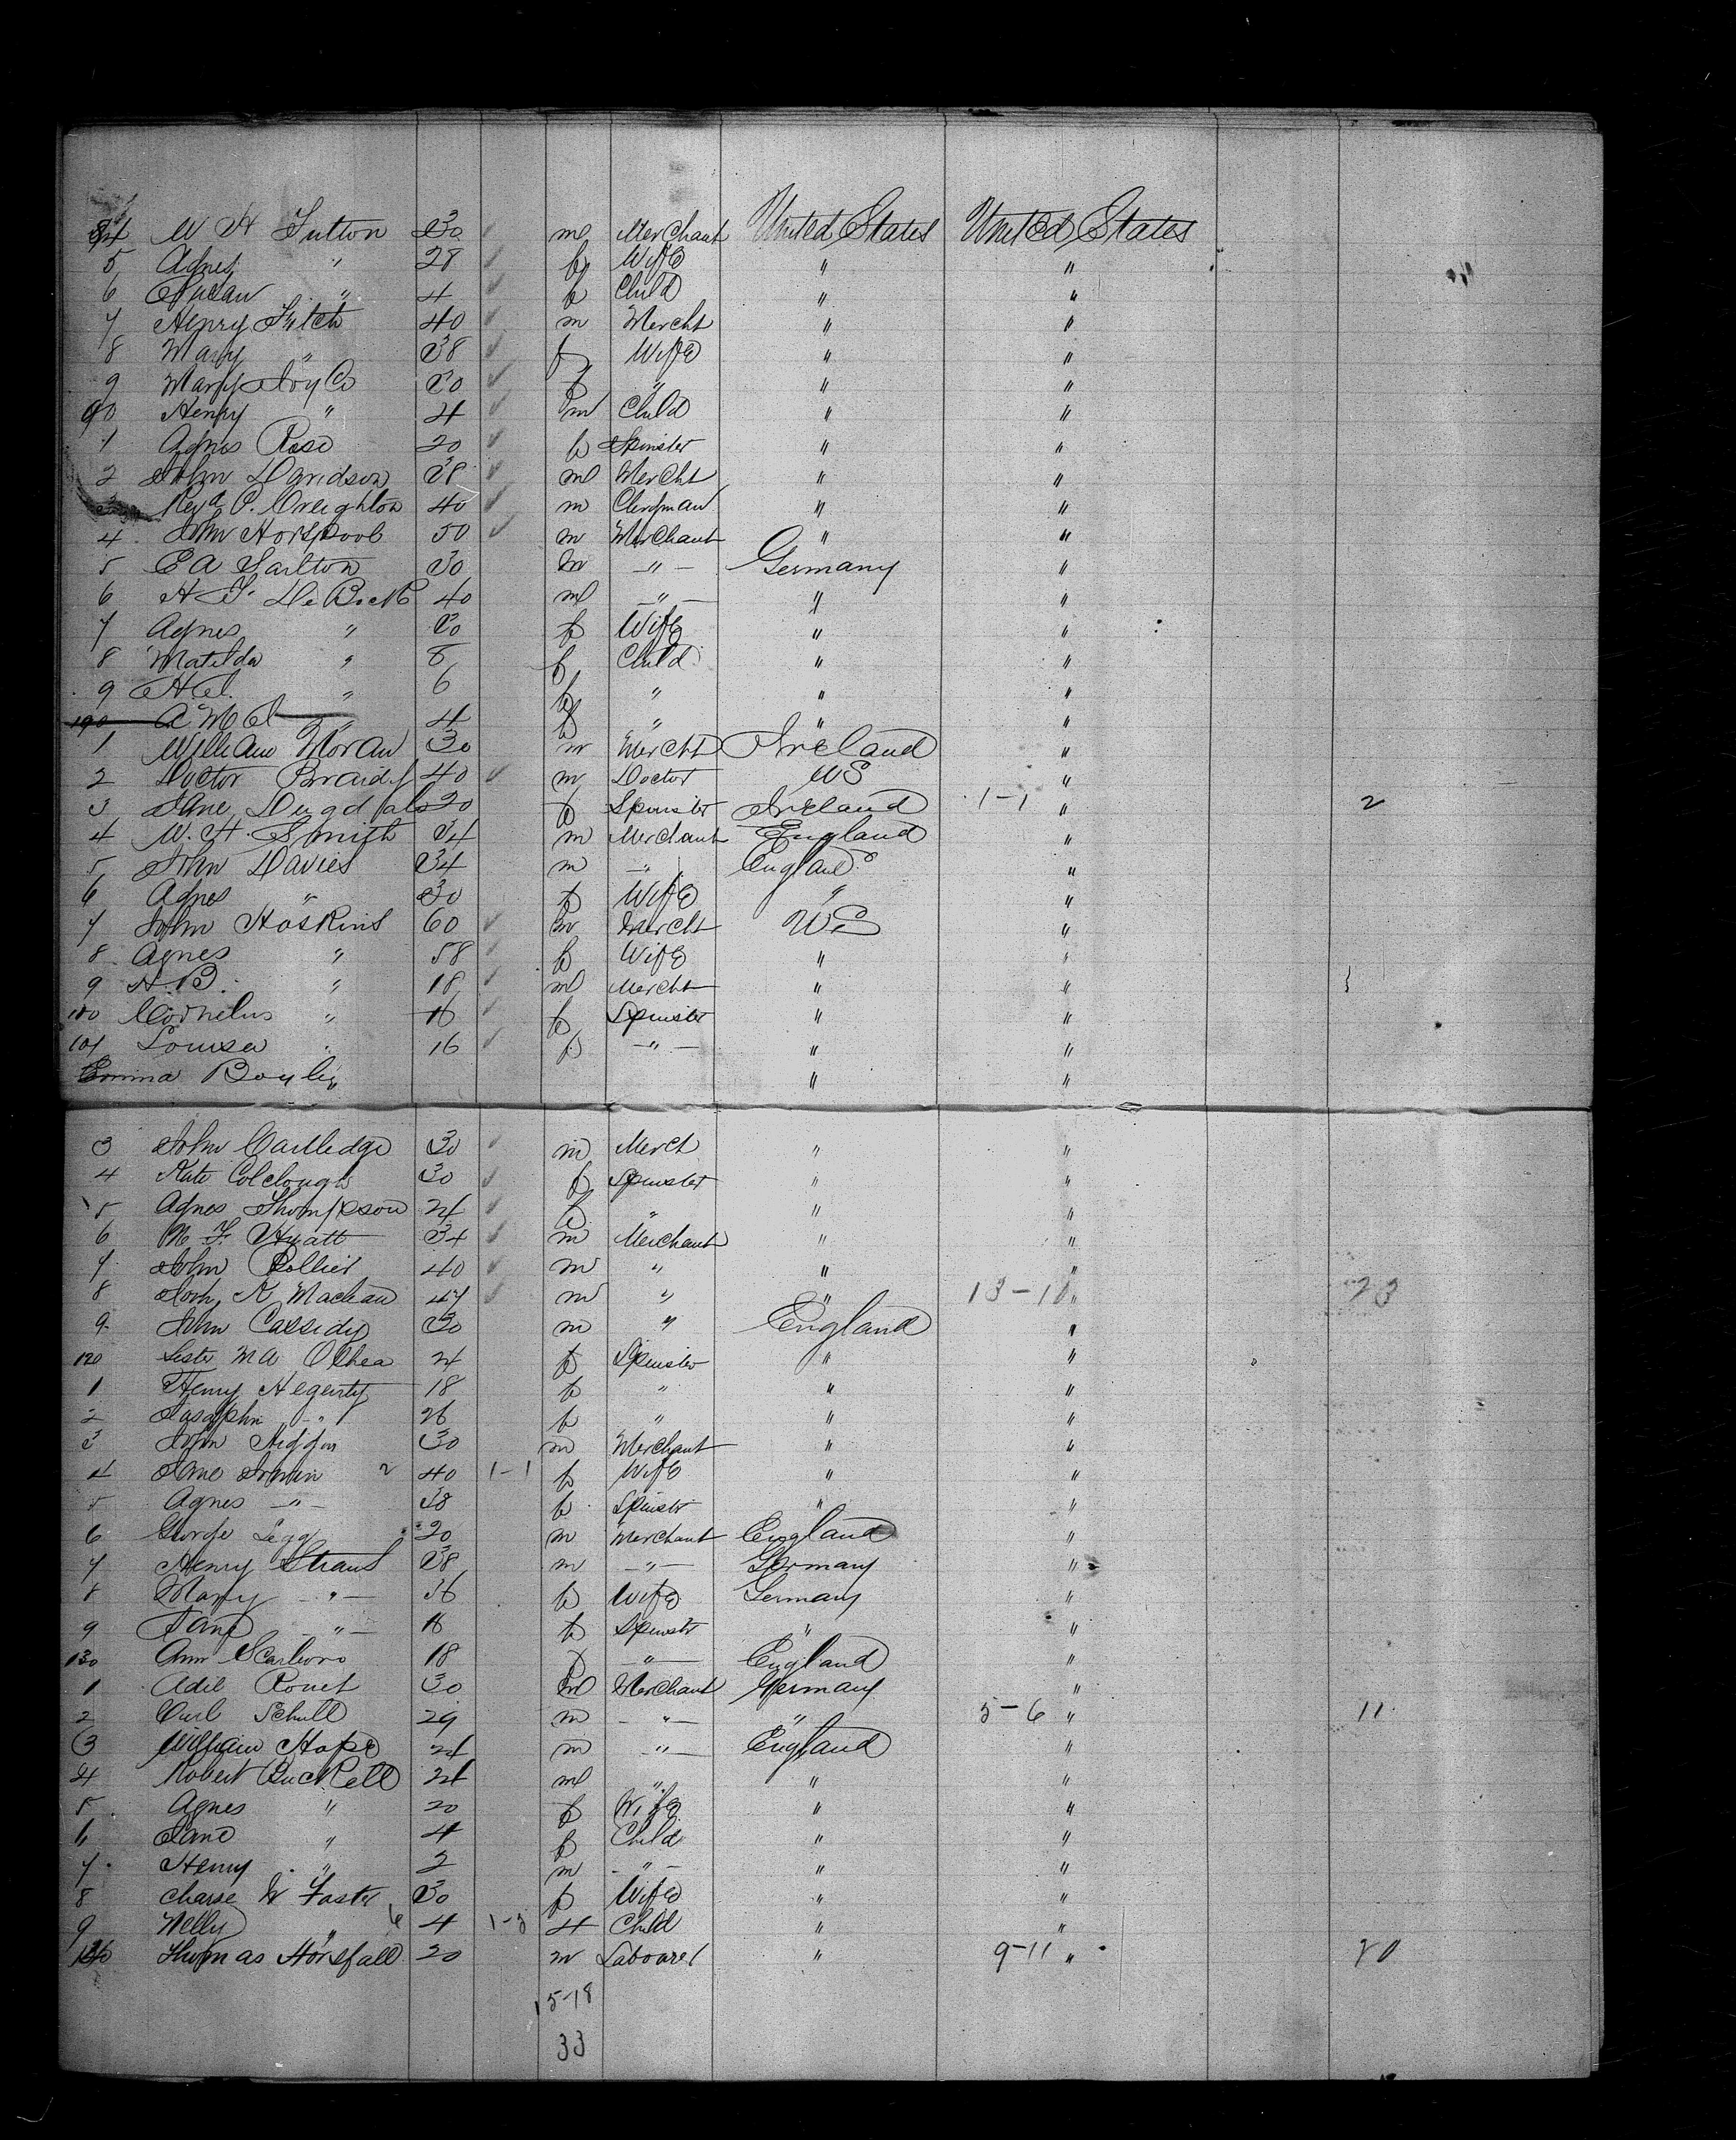 84 W H Sutton 30 m Merchant United States United States
5 Agnes " 28 f Wife " "
6 Susan " 4 f Child " "
7 Henry Fitch 40 m Mercht " "
8 Mary " 38 f Wife " "
9 Mary 30 f " " "
90 Henry " 4 m Child " "
1 Agnes Rose 20 f Spinster " "
2 John Davidson 38 m Mercht " "
Revd P. Creighton 40 m Clergman " "
4 John Horspool 50 m Merchant " "
5 E A Sarlton 30 m - " - Germany "
6 H S. De Bock 40 m - " - " "
7 Agnes " 30 f Wife " "
8 Matilda " 8 f Child " "
9 " 6 f " " "
190 " 4 f " " "
1 William Moran 30 m Mercht Ireland "
2 Doctor 40 m Doctor US "
3 Jane Dugdale 20 f Spinster Ireland 1-1 " 2
4 W. H. Smith 34 m Merchant England "
5 John Davies 34 m - " England "
6 Agnes " 30 f Wife " "
7 John Hoskins 60 m Mercht US "
8 Agnes " 58 f Wife " "
9 H. B. " 18 m Mercht " "
100 Cornelus " 16 f Spinster " "
101 Louisa " 16 f - " - " "
Emma " "
3 John Cartledge 30 m Merch " "
4 Kate Colclough 30 f Spinster " "
5 Agnes Thompson 24 f " " "
6 Hyatt 34 m Merchant " "
7 John Collier 40 m " " "
8 K Maclean 47 m " " 13-10 " 23
9 John Cassidy 30 m " England "
120 Sister M A OShea 24 f Spinster " "
1 Henry Hegerty 18 f " " "
2 - " 26 f " " "
3 John 30 m Merchant " "
4 Jane 2 40 1-1 f Wife " "
5 Agnes - " - 38 f Spinster " "
6 George Legg 20 m Merchant England "
7 Henry Straus 38 m - " - Germany "
8 Mary - " - 36 f Wife Germany "
9 Jane - " - 16 f Spinster " "
130 Ann Scarboro 18 f - " - England "
1 30 m Merchant Germany "
2 Carl Schull 29 m - " - " 5-6 " 11
3 William Hope 24 m - " - England "
4 Robert Buckell 24 m " " "
5 Agnes " 20 f Wife " "
6 Jane " 4 f Child " "
7 Henry " 2 m - " - " "
8 Foster 30 f Wife " "
9 Nelly " 6 4 1-3 4 Child " "
140 Thomas Horsfall 20 m Labourer " 9-11 " 20
15-18
33